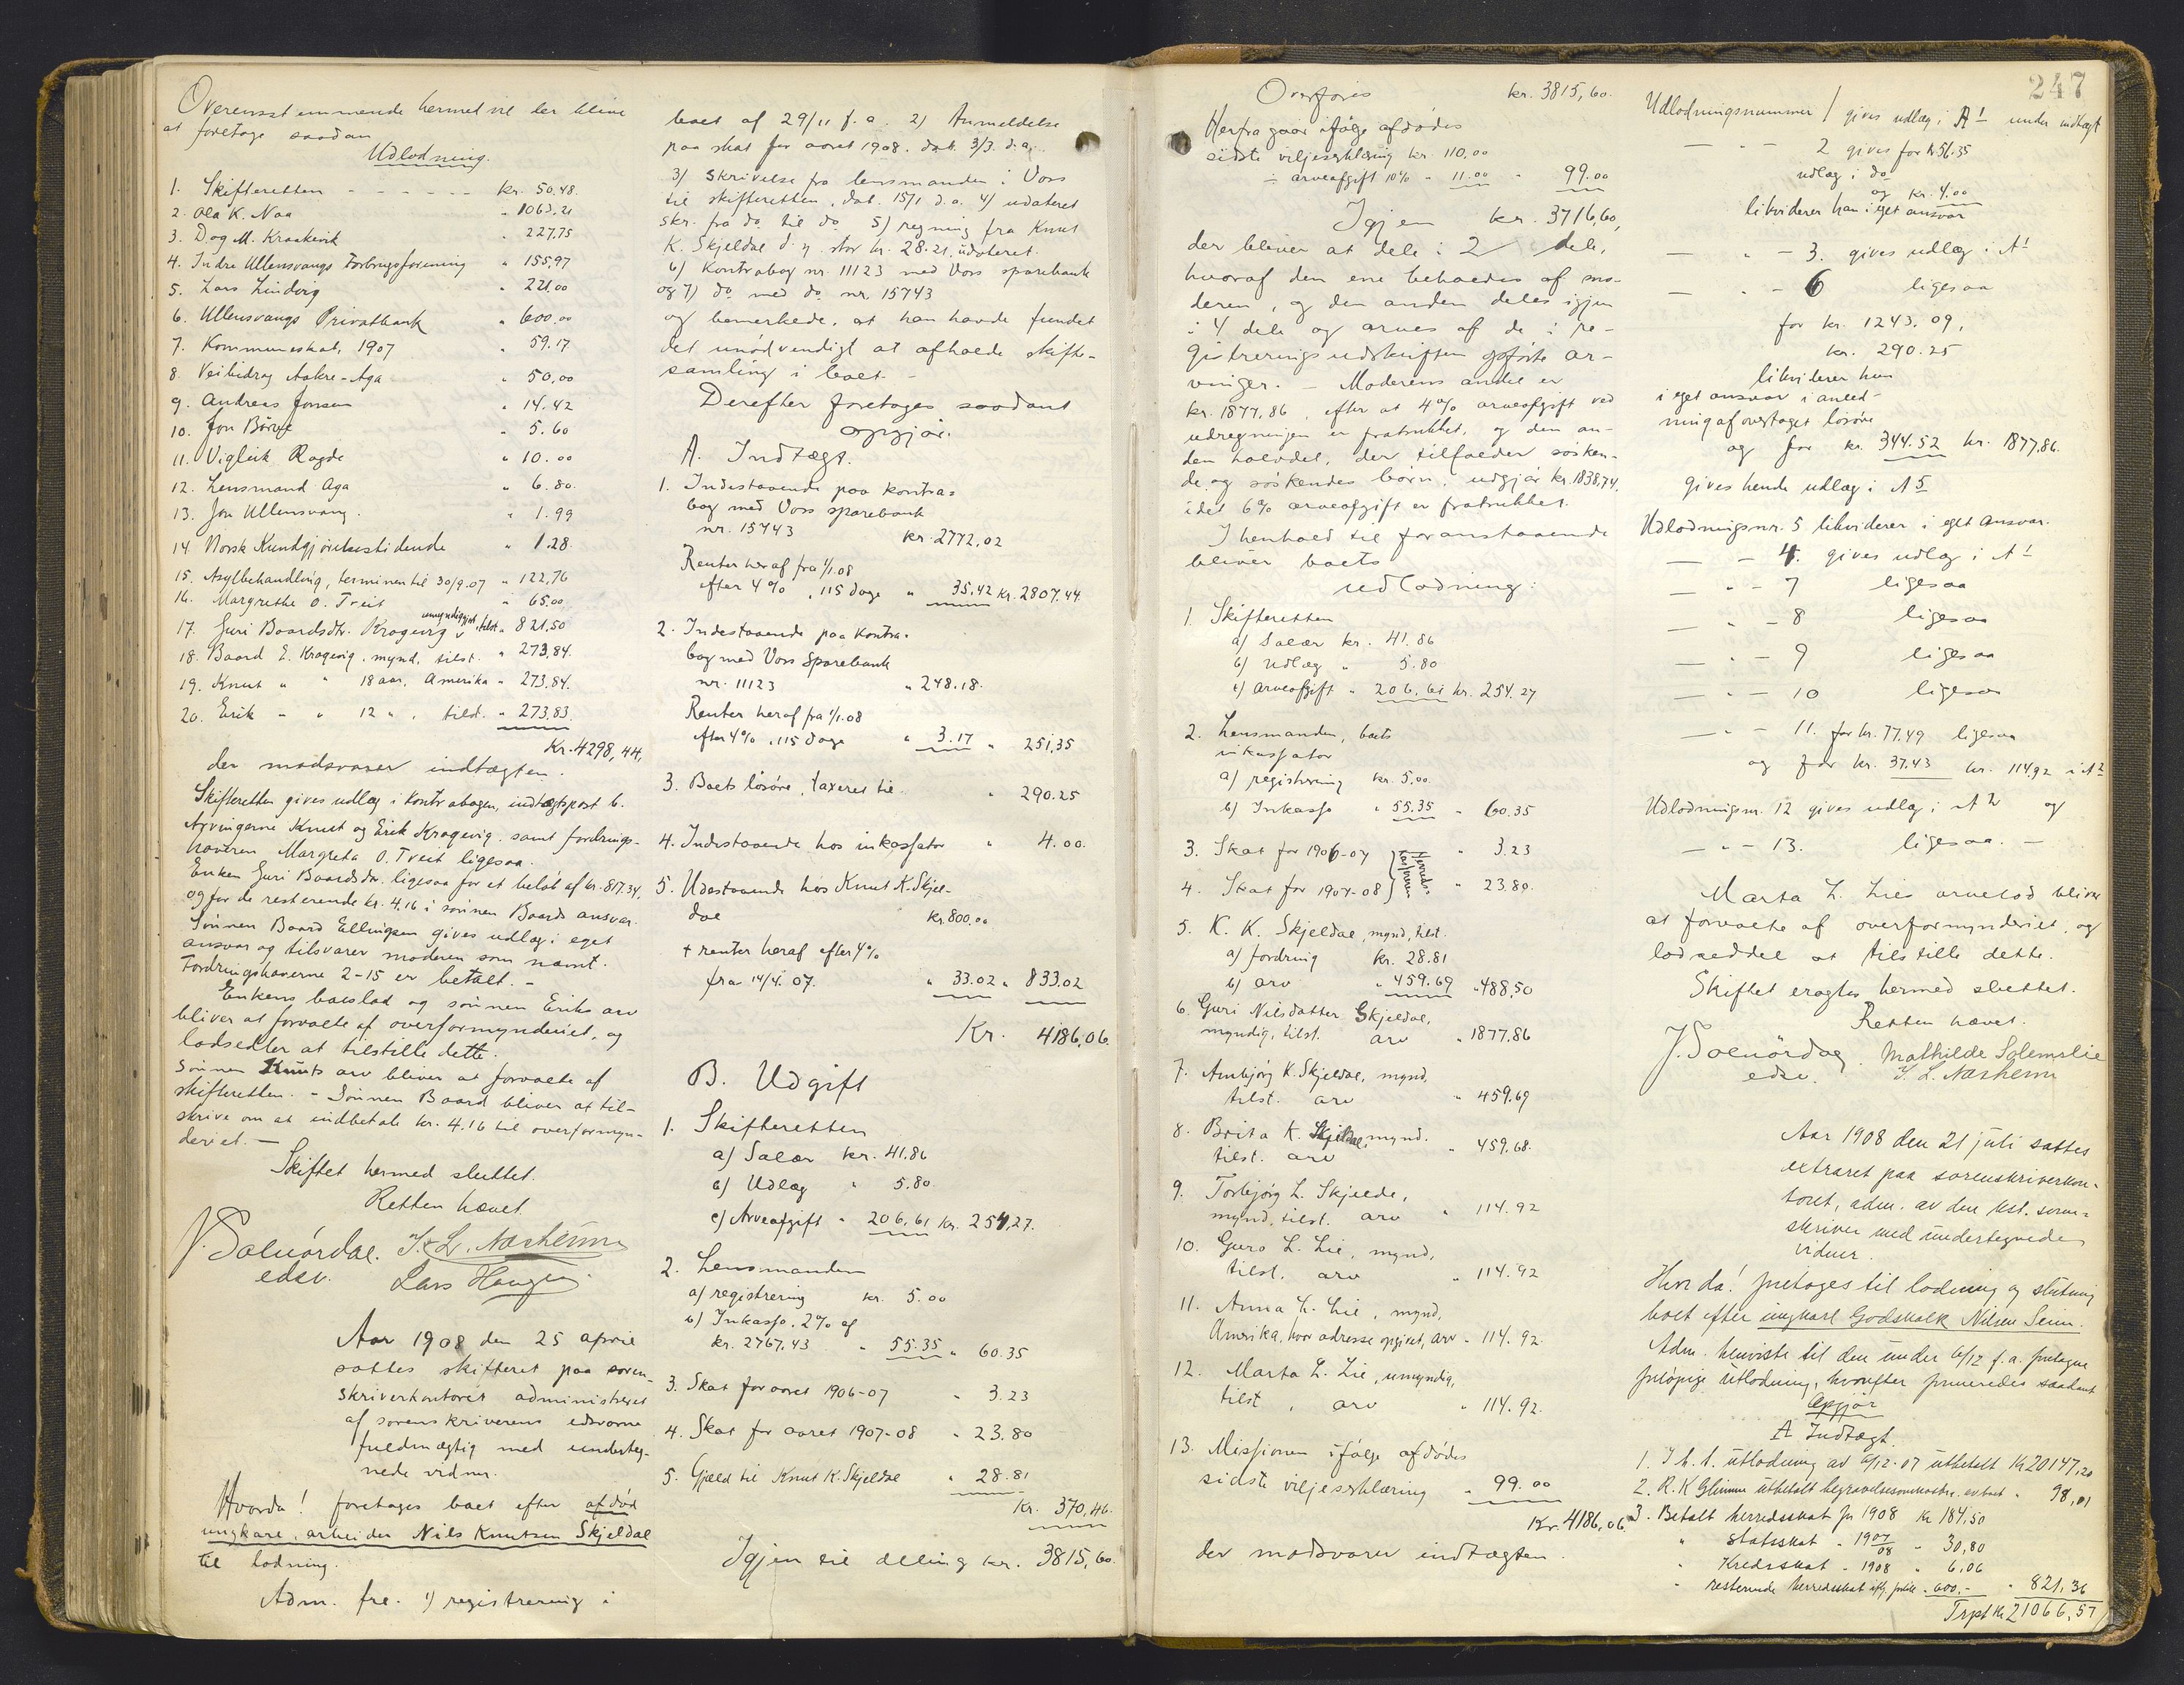 Overensstemmende hermed vil der blive
at foretage saadan
Udlodning.
1. Skifteretten - - - - - - kr. 50.48.
2. Ola K. Naa " 1063.21
3. Dog M. Kraakevik " 227.75
4. Indre Ullensvangs Forbrugsforening " 155.97
5. Lars Lindvig " 221.00
6. Ullensvangs Privatbank " 600.00
7. Kommuneskat, 1907 " 59.17
8. Veibidrag Aakre-Aga " 50,00
9. Andreas Jonsen " 14.42
10. Jon Børve " 5.60
11. Vigleik Ragde " 10.00
12. Lensmand Aga " 6.80.
13. Jon Ullensvang. " 1.99
14. Norsk Kundgjørelsestidende " 1.28
15. Asylbehandling, terminen til 30/9.07 " 122,76
16. Margrethe O. Treit " 65.00
17. Guri Baardsdtr. Kragevig umyndiggjort, tilst. " 821,50
18. Baard E. Kragevig, mynd, tilst. " 273,84.
19. Knut " " 18 aar, Amerika " 273.84.
20. Erik " " 12 " , tilst. " 273.83.
Kr. 4298,44,
der modsvarer indtægten.
Skifteretten gives udlæg i kontrabogen, indtægtspost 6.
Arvingerne Knut og Erik Kragevig samt fordrings-
haveren Margreta O. Treit ligesaa.
Enken Guri Baardsdtr. ligesaa for et beløb af kr. 817.34,
og for de resterende kr. 4.16 i sønnen Baards ansvar.
Sønnen Baard Ellingsen gives udlæg i eget
ansvar og tilsvarer moderen som nævnt.
Fordringshaverne 2-15 er betalt. -
Enkens boeslod og sønnen Eriks arv
bliver at forvalte af overformynderiet, og
lodsedler at tilstille dette.
Sønnen Knuts arv bliver at forvalte af
skifteretten. - Sønnen Baard bliver at til-
skrive om at indbetale kr. 4.16 til overformyn-
deriet. -
Skiftet hermed sluttet.
Retten hævet
J. Solnørdal. I. L. Næsheim
edsv. Lars Haugen
Aar 1908 den 25 april
sattes skifteret paa soren-
skriverkontoret administreret
af sorenskriverens edsvorne
fuldmægtig med underteg-
nede vidner.
Hvorda! foretoges boet efter afdød
ungkarl, arbeider Nils Knutsen Skjeldal
til lodning.
Adm. fre. 1) registrering i
boet af 29/11 f.a. 2) Anmeldelse
paa skat for aaret 1908. dat. 3/3. d.a.
3) Skrivelse fra lensmanden i Voss
til skifteretten, dat. 15/1 d.a. 4) udateret
skr. fra do. til do. 5) regning fra Knut
K. Skjeldal d.y. stor kr. 28.21, udateret.
6) Kontrabog nr. 11123 med Voss sparebank
og 7) do. med do. nr. 15743
og bemerkede, at han havde fundet
det unødvendigt at afholde skifte-
samling i boet. -
Derefter foretoges saadant
opgjør.
A. Indtægt.
1. Indestaaende paa kontra-
bog med Voss sparebank
nr. 15743 kr. 2772,02
Renter heraf fra 1/1.08
efter 4%, 115 dage " 35.42 kr. 2807.44
2. Indestaaende paa kontra-
bog med Voss Sparebank
nr. 11123 " 248.18.
Renter heraf fra 1/1.08
efter 4%, 115 dage " 3.17 " 251,35
3. Boets løsøre, taxeret til " 290.25
4. Indestaaende hos inkassator " 4.00.
5. Udestaaende hos Knut K. Skjel-
dal kr. 800.00
+ renter heraf efter 4%
fra 14/4. 07. " 33.02 " 833.02
Kr. 4186,06.
B. Udgift
1. Skifteretten
a) Salær kr. 41.86
b) Udlæg " 5.80.
c) Arveafgift " 206,61 kr. 254,27.
2. Lensmanden
a) registrering kr. 5.00
b) Inkasso. 2% af
kr. 2767,43 " 55.35 " 60.35
3. Skat for aaret 1906-07 " 3.23
4. Skat for aaret 1907-08 " 23.80
5. Gjæld til Knut K. Skjeldal " 28.81
Kr. 370,46.
Igjen til deling kr. 3815,60.
247
Overføres kr. 3815,60.
Herfra gaar ifølge afdødes
sidste viljeserklæring kr. 110,00
÷ arveafgift 10% " 11.00 " 99.00
Igjen kr. 3716,60,
der bliver at dele i 2 dele,
hvoraf den ene beholdes af mo-
deren, og den anden deles igjen
i 4 dele og arves af de i re-
gistreringsudskriften opførte ar-
vinger. - Moderens andel er
kr. 1877,86, efter at 4% arveafgift ved
udregningen er fratrukket, og den an-
den halvdel, der tilfalder søsken-
de og søskendes børn, udgjør kr. 1838,74,
idet 6% arveafgift er fratrukket.
I henhold til foranstaaende
bliver boets
udlodning:
1. Skifteretten
a) Salær kr. 41.86
b) Udlæg " 5.80
c) arveafgift " 206.61 kr. 254.27
2. Lensmanden, boets
inkassator
a) registrering kr. 5.00.
b) Inkasso " 55.35 " 60.35
3. Skat for 1906-07 " 3.23
4. Skat for 1907-08 " 23.80.
5. K. K. Skjeldal, mynd, tilst.
a) fordring kr. 28.81
b) arv " 459.69 " 488,50
6. Guri Nilsdatter Skjeldal,
myndig, tilst. arv " 1877.86
7. Ambjørg K. Skjeldal, mynd,
tilst. arv " 459.69
8. Brita K. Skjeldal, mynd.
tilst. arv " 459.68.
9. Torbjørg L. Skjelde,
mynd, tilst. arv " 114.92
10. Guro L. Lie, mynd,
tilst. arv " 114.92
11. Anna L. Lie, mynd,
Amerika, hvor adresse opgivet, arv " 114.92.
12. Marta L. Lie, umyndig,
tilst, arv " 114.92.
13. Missionen ifølge afdødes
sidste viljeserklæring " 99.00
Kr. 4186,06.
der modsvarer indtægten.
Udlodningsnummer 1 gives udlæg i A1 under indtægt
— — 2 gives for kr. 56.35
udlæg i do
og kr. 4.00
likviderer han i eget ansvar
— " - 3. gives udlæg i A1
— " - 6 ligesaa
for kr. 1243.09,
kr. 290.25
likviderer hun
i eget ansvar i anled-
ning af overtaget løsøre
og for kr. 344.52 kr. 1877,86.
gives hende udlæg i A5
Udlodningsnr. 5 likviderer i eget ansvar.
— — 4. gives udlæg i A1
— " - 7 ligesaa
— " - 8 ligesaa
— " - 9 ligesaa
— " - 10 ligesaa
— " - 11. for kr. 77.49 ligesaa
og for kr. 37.43 kr. 114,92 i A2
Udlodningsnr. 12 gives udlæg i A2 og
— " - 13. ligesaa. -
Marta L. Lies arvelod bliver
at forvalte af overformynderiet, og
lodseddel at tilstille dette.
Skiftet eragtes hermed sluttet.
Retten hævet.
J. Solnørdal. Mathilde Solemslie
edsv. I. L. Næsheim
Aar 1908 den 21 juli sattes
extraret paa sorenskriverkon-
toret, adm. av den kst. soren-
skriver med undertegnede
vidner.
Hvorda! foretoges til lodning og slutning
boet efter ungkarl Godskalk Nilsen Seim.
Adm. henviste til den under 6/12 f.a. foretagne
foreløpige utlodning, hvorefter passeredes saadant
Opgjør
A Indtægt.
1. I h. t. utlodning av 6/12-07 utbetalt Kr 20147,20
2. R. K Glimme utbetalt begravelsesomkostn. av boet " 98,01
3. Betalt herredsskat for 1908 Kr 184,50
" statsskat " 1907/08 " 30,80
" Kredsskat " 1908 " 6,06
" resterende herredsskat " 600.- " 821,36
Trpt Kr 21066,57